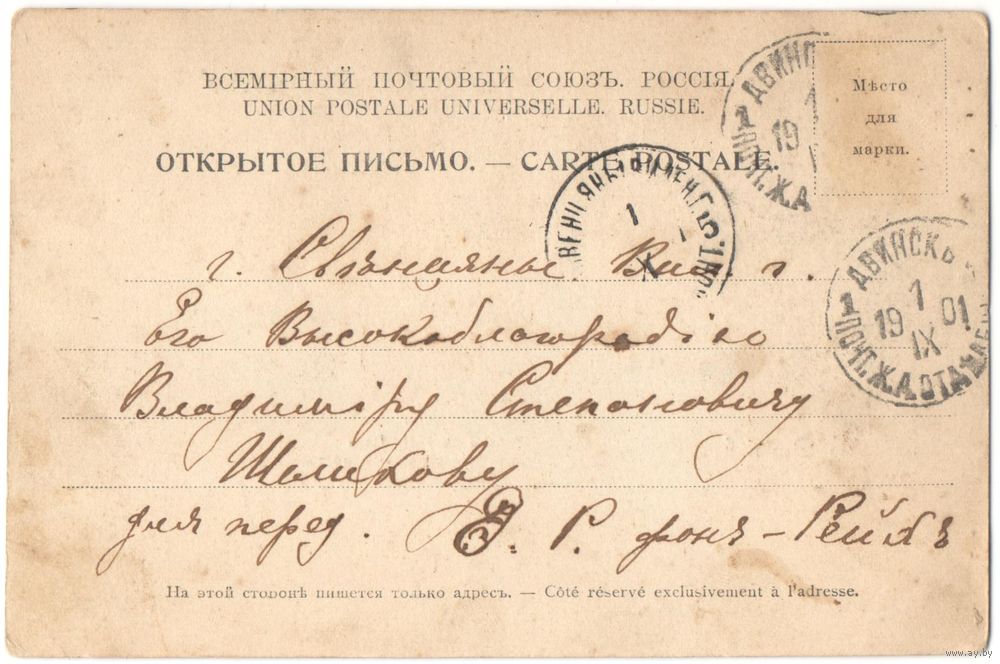 ВСЕМІРНЫЙ ПОЧТОВЫЙ СОЮЗЪ. РОССІЯ.
UNION POSTALE UNIVERSELLE. RUSSIE.
ОТКРЫТОЕ ПИСЬМО. — CARTE POSTALE.
Мѣсто
для
марки.
ДВИНС
1 19 1
ПОЧТ. Ж.А
1 X
ДВИНСКЪ
1 19 1 01
IX
ПОЧТ. Ж.Д. ОТД.
г. Свѣнцяны Вил. г.
Его Высокоблагородію
Владиміру Степановичу
для перед. Э. Р. фонъ-
На этой сторонѣ пишется только адресъ. — Côté réservé exclusivement à l'adresse.
www.ay.by